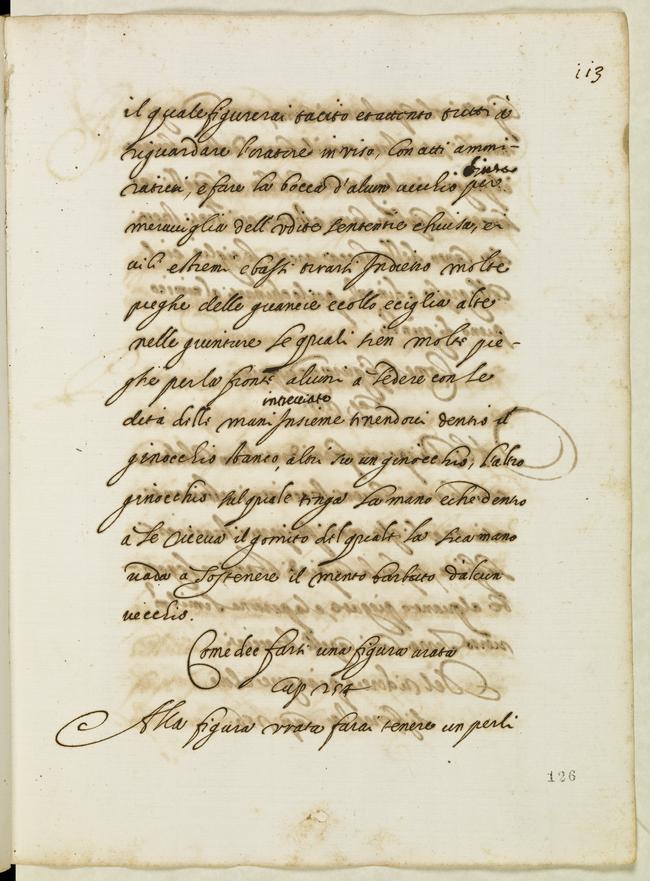 113
il quale figurerai tacito et attento tutti à
riguardare l'oratore in viso, con atti ammi-
rativi, e fare la bocca d'alcun vecchio per
meraviglia dell'udite sententie chiusa,
estremi e bassi tirarsi Indietro molte
pieghe delle guancie e collo, e ciglia alte
nelle giunture le quali molte pie-
ghe per la fronte alcuni a sedere con le
intrecciate
dita delle mani Insieme tenendoci dentro il
ginocchio stanco, altri su un ginocchio, l'altro
ginocchio sul quale tenga la mano e che dentro
a se riceva il gomito del quale la sua mano
vada a sostenere il mento barbuto d'alcun
vecchio.
Come dee farsi una figura irata
Cap 254
Alla figura irata farai tenere un per li
126